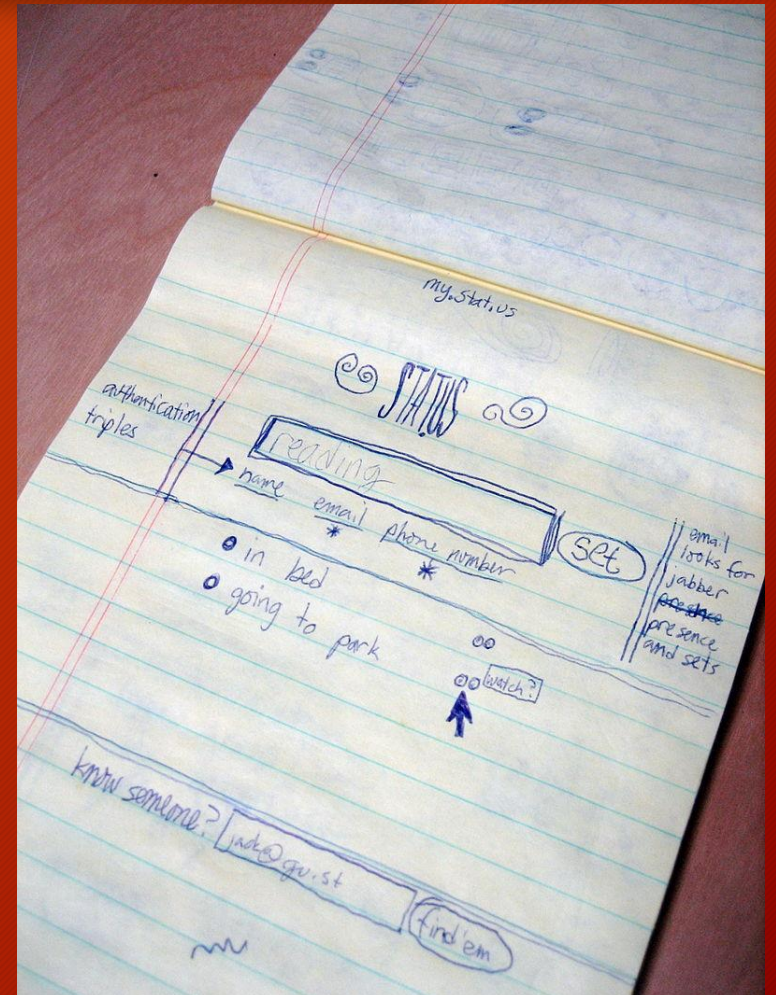 my.stat.us
STAT.US
authentication
triples
reading
name email phone number
* *
set
email
looks for
jabber
presence
and sets
in bed
going to park
watch?
know someone?
jack@gu.st
find'em